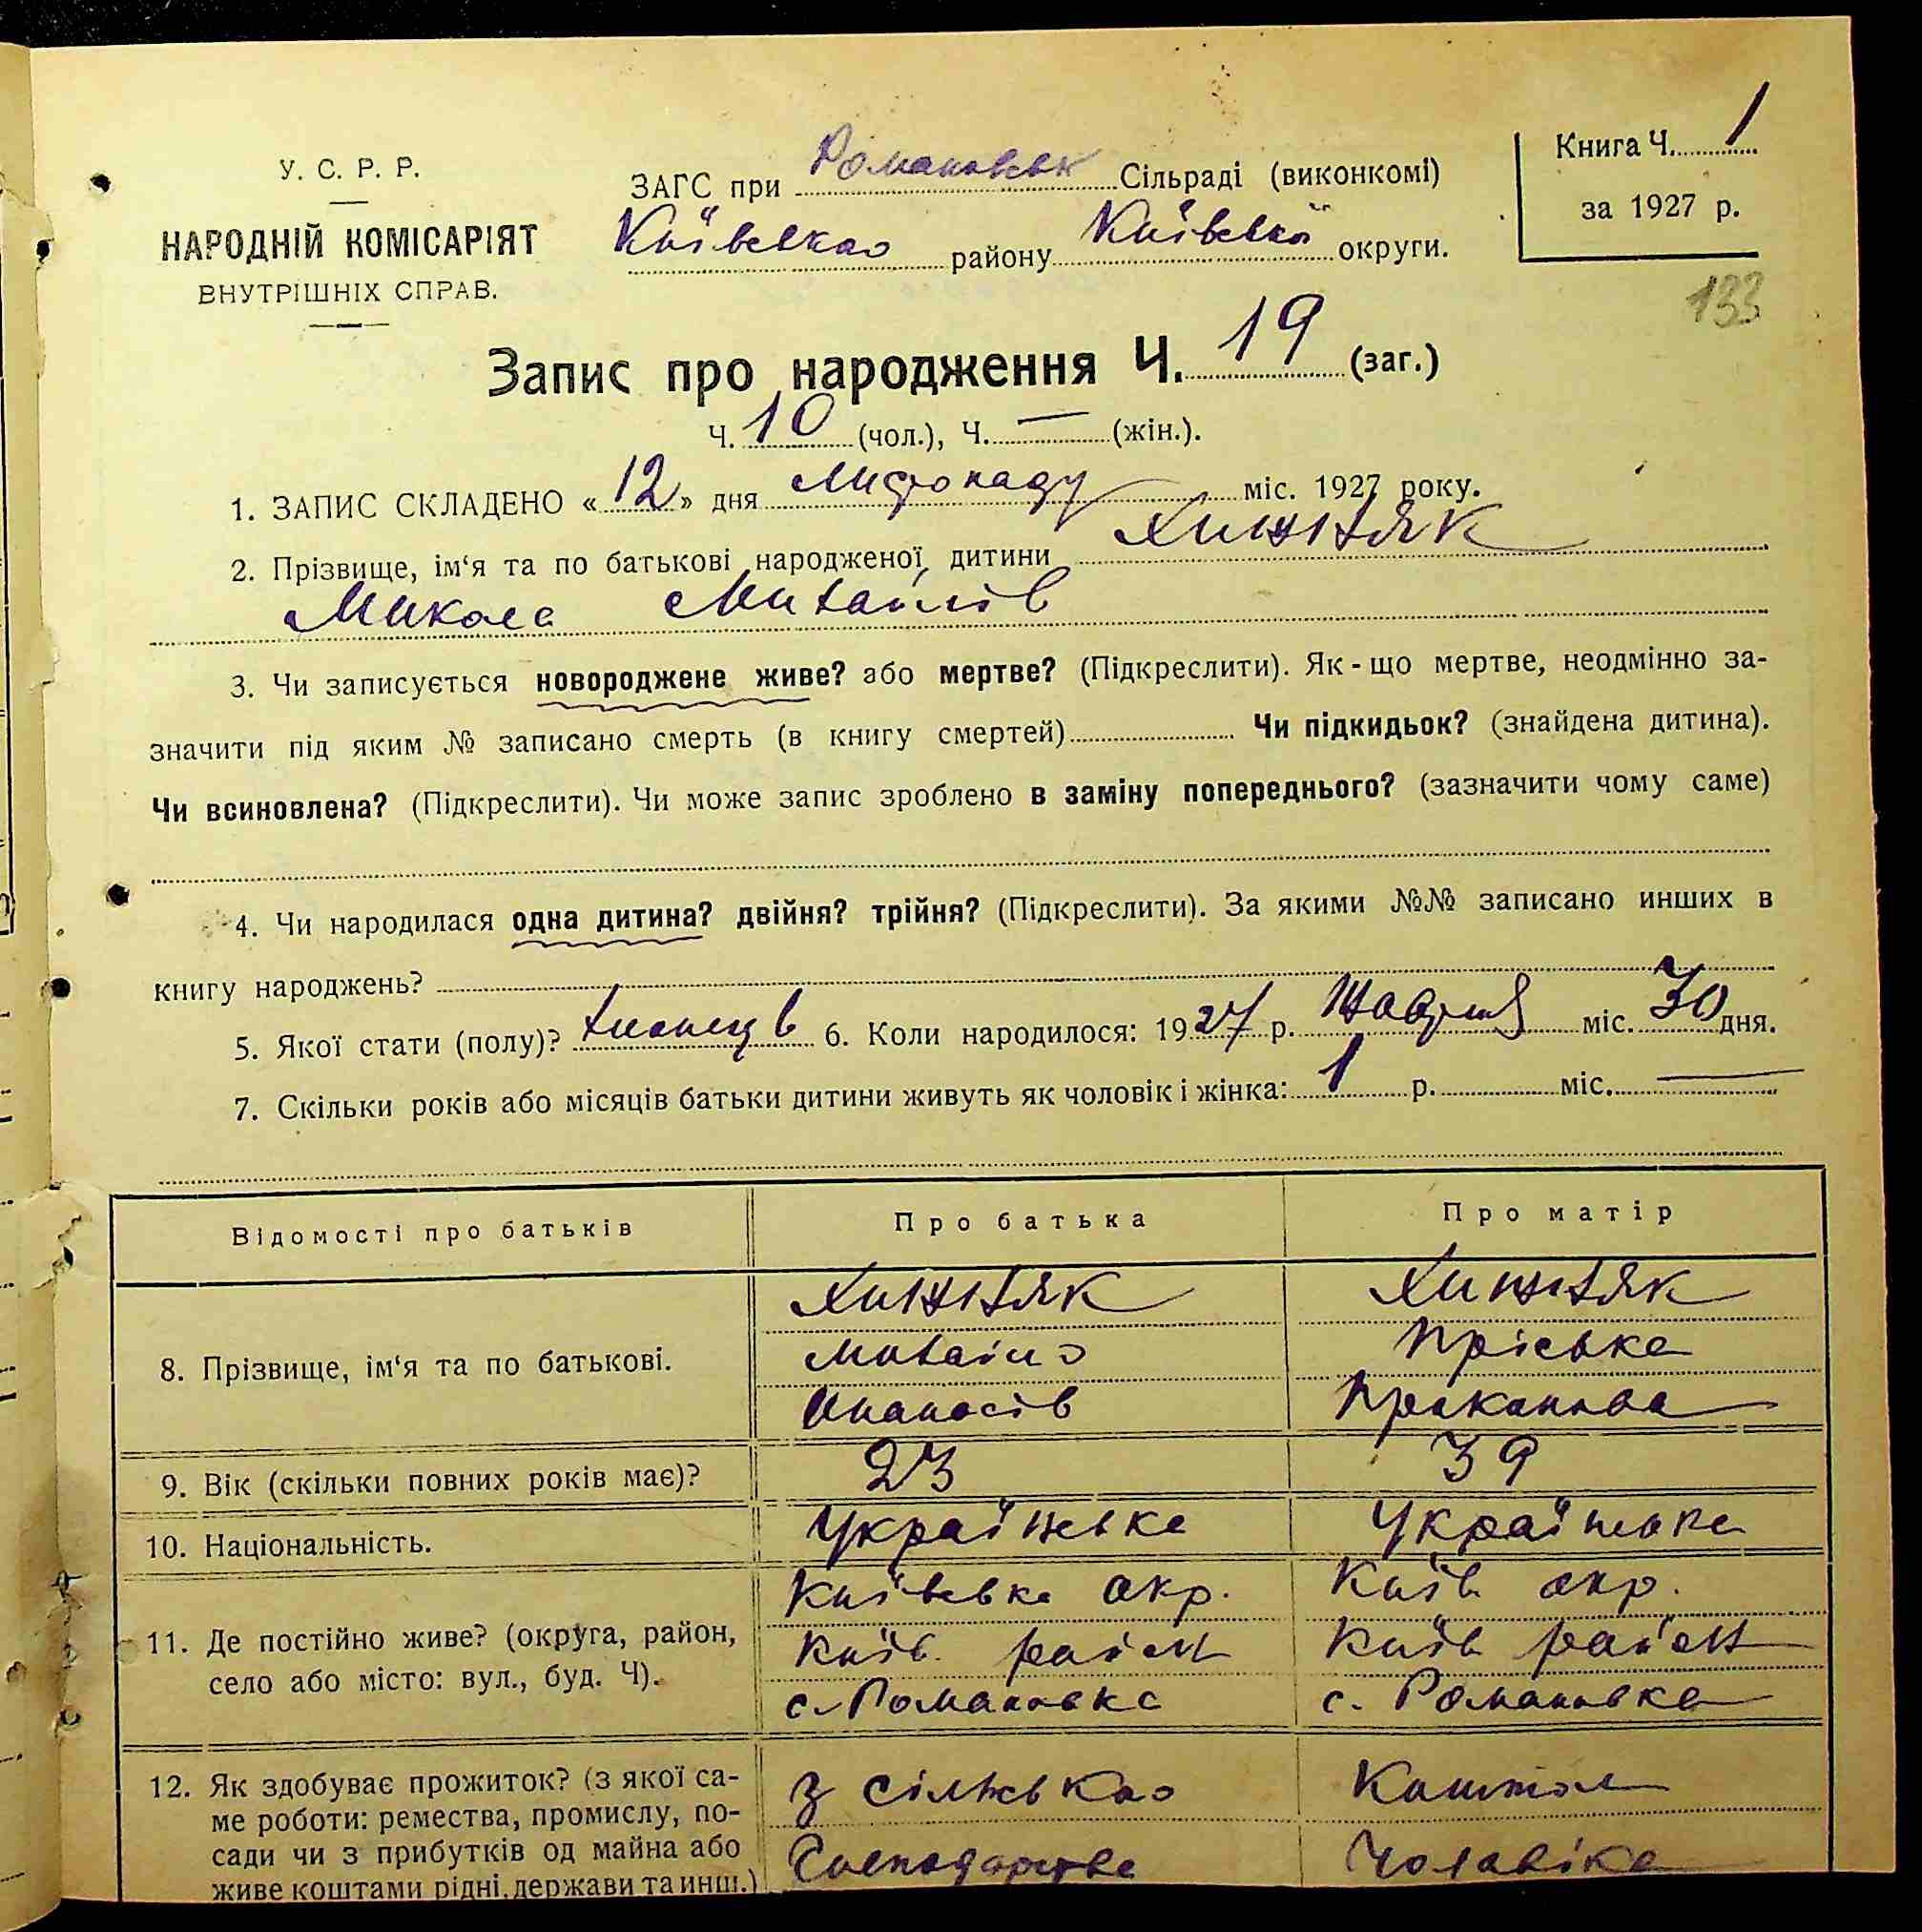 У. С. Р. Р.
НАРОДНІЙ КОМІСАРІЯТ
ВНУТРІШНІХ СПРАВ.
ЗАГС при Романовськ Сільраді (виконкомі)
Київсько района Київської округи.
Книга Ч. 1
за 1927 р.
133
Запис про народження Ч. 19 (заг.)
Ч. 10 (чол.), Ч. — (жін.).
1. ЗАПИС СКЛАДЕНО «12» дня Листопаду міс. 1927 року.
2. Прізвище, ім‘я та по батькові народженої дитини Хижняк
Микола Михайлів
3. Чи записується новороджене живе? або мертве? (Підкреслити). Як-що мертве, неодмінно за-
значити під яким № записано смерть (в книгу смертей) Чи підкидьок? (знайдена дитина).
Чи всиновлена? (Підкреслити). Чи може запис зроблено в заміну попереднього? (зазначити чому саме)
4. Чи народилася одна дитина? двійня? трійня? (Підкреслити). За якими №№ записано инших в
книгу народжень?
5. Якої стати (полу)? хлопець 6. Коли народилося: 1927 р. Жовтня міс. 30 дня.
7. Скільки років або місяців батьки дитини живуть як чоловік і жінка: 1 р. міс. —
Відомості про батьків Про батька Про матір
8. Прізвище, ім‘я та по батькові.
Хижняк Хижняк
Михайло Пріська
Опанасів Проконова
9. Вік (скільки повних років має)? 23 39
10. Національність. Українське Українська
11. Де постійно живе? (округа, район,
село або місто: вул., буд. Ч).
Київська окр. Київ окр.
Київ. район Київ район
с. Романовка с. Романовка
12. Як здобуває прожиток? (з якої са-
ме роботи: ремества, промислу, по-
сади чи з прибутків од майна або
живе коштами рідні, держави та инш.)
З сільсько Коштом
Господарства Чоловіка